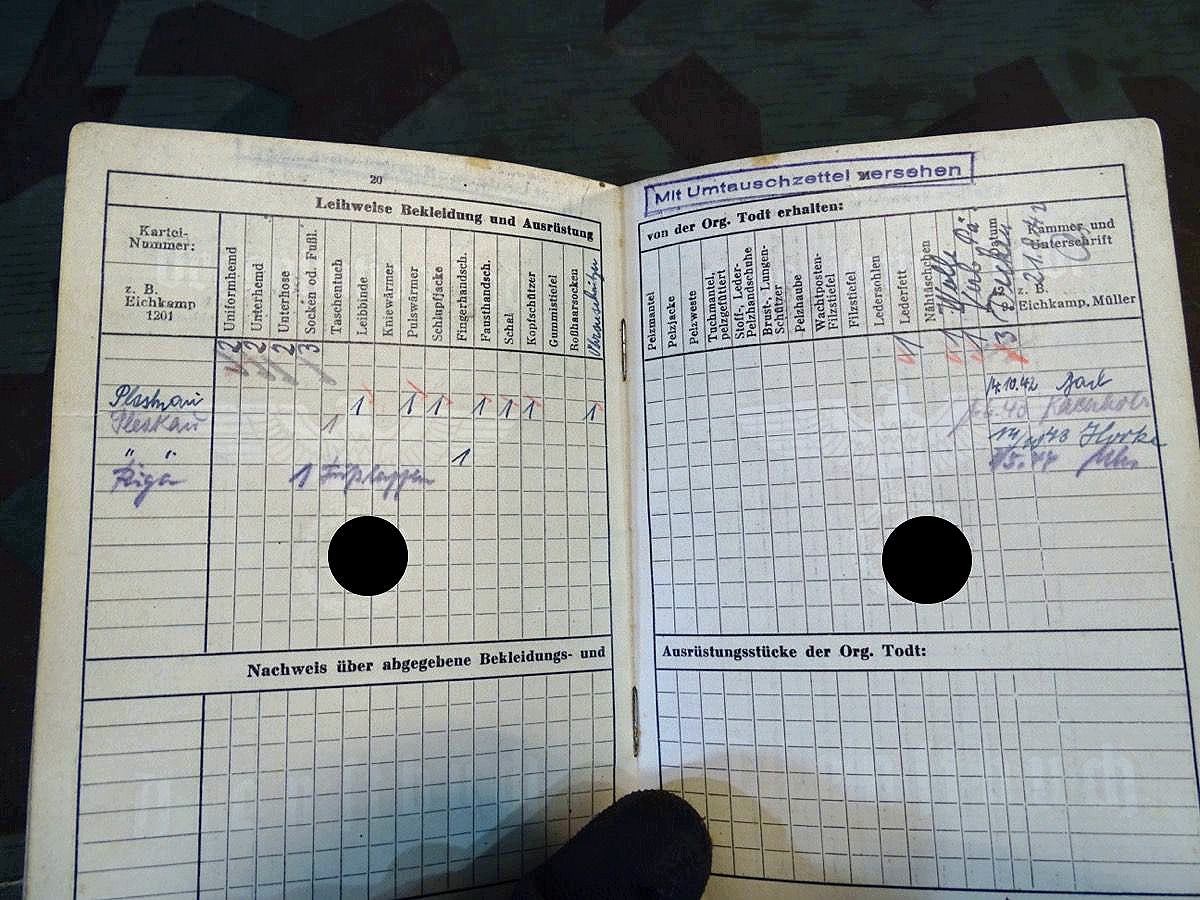 20
Mit Umtauschzettel versehen
Leihweise Bekleidung und Ausrüstung
von der Org. Todt erhalten:
Kartei-
Nummer:
z. B.
Eichkamp
1201
Uniformhemd
Unterhemd
Unterhose
Socken od. Fußl.
Taschentuch
Leibbinde
Kniewärmer
Pulswärmer
Schlupfjacke
Fingerhandsch.
Fausthandsch.
Schal
Kopfschützer
Gummistiefel
Roßhaarsocken
Ohrenschützer
Pelzmantel
Pelzjacke
Pelzweste
Tuchmantel,
pelzgefüttert
Stoff-, Leder-
Pelzhandschuhe
Brust-, Lungen-
Schützer
Pelzhaube
Wachtposten-
Filzstiefel
Filzstiefel
Ledersohlen
Lederfett
Nähtäschchen
Decken
Datum
21.
Kammer und
Unterschrift
z. B.
Eichkamp, Müller
2 2 2 3
1 1 1 3
Pleskau 1 1 1 1 1 1 1 14.10.42
Pleskau 1
" " 1
Riga 1 Fußlappen
Nachweis über abgegebene Bekleidungs- und
Ausrüstungsstücke der Org. Todt: